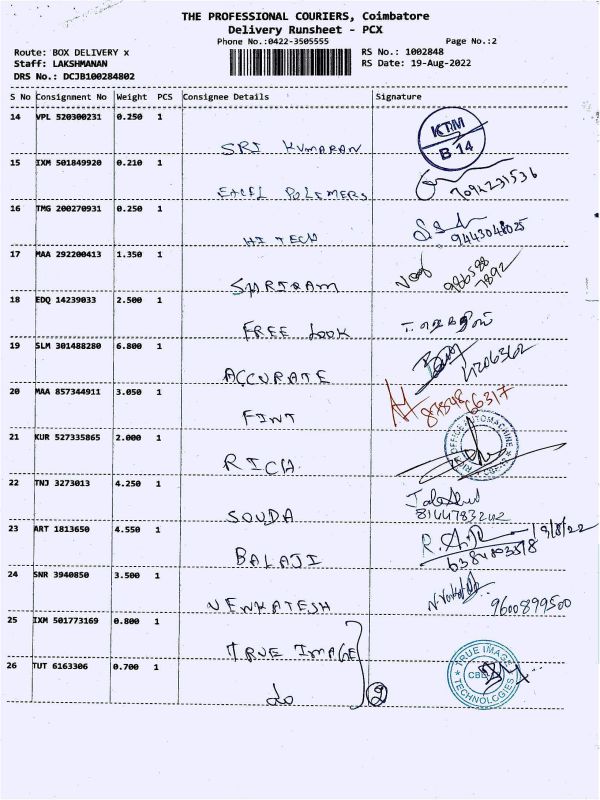 THE PROFESSIONAL COURIERS, Coimbatore
Delivery Runsheet - PCX
Phone No.:0422-3505555
Page No.:2
Route: BOX DELIVERY x
RS No.: 1002848
Staff: LAKSHMANAN
RS Date: 19-Aug-2022
DRS No.: DCJB100284802
S No Consignment No Weight PCS Consignee Details Signature
14 VPL 520300231 0.250 1
SRI KUMARAN
KTM
B 14
15 IXM 501849920 0.210 1
EXCEL POLIMERS
7092231536
16 TMG 200270931 0.250 1
HI TECH
9443048025
17 MAA 292200413 1.350 1
SHRIRAM
986588
7892
18 EDQ 14239033 2.500 1
FREE LOOK
19 SLM 301488280 6.800 1
ACCURATE
4206362
20 MAA 857344911 3.050 1
FINT
21 KUR 527335865 2.000 1
RICH
22 TNJ 3273013 4.250 1
SOUDA
23 ART 1813650 4.550 1
BALAJI
19/8/22
24 SNR 3940850 3.500 1
VENKATESH
9600899500
25 IXM 501773169 0.800 1
TRUE IMAGE
26 TUT 6163306 0.700 1
do
2
TRUE IMAGE
TECHNOLOGIES